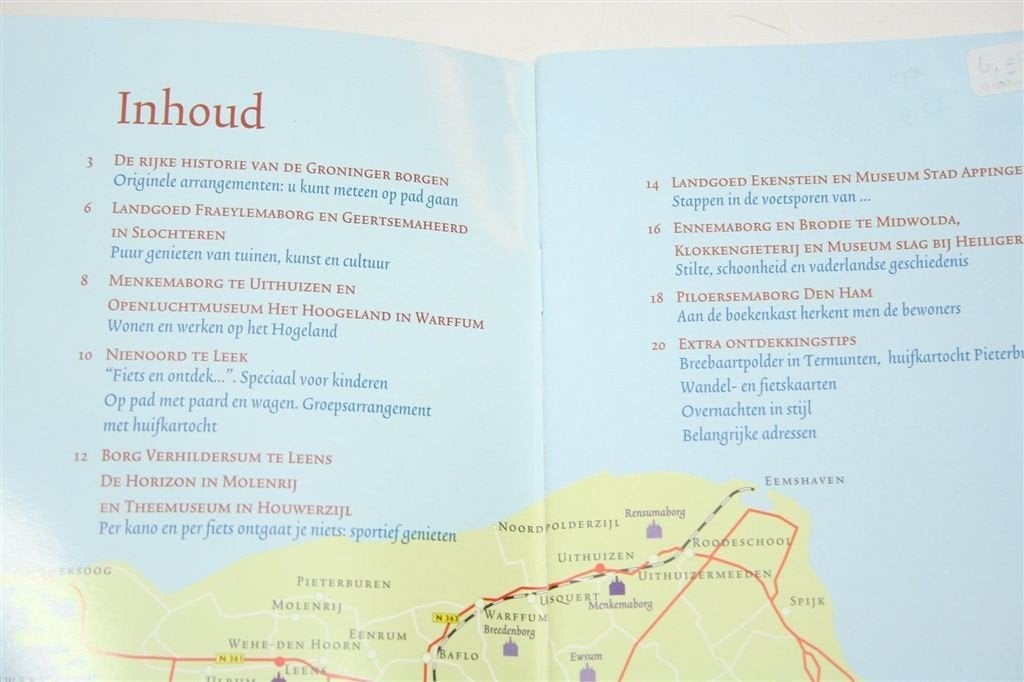 Inhoud
3 De rijke historie van de Groninger borgen
Originele arrangementen: u kunt meteen op pad gaan
6 Landgoed Fraeylemaborg en Geertsemaheerd
in Slochteren
Puur genieten van tuinen, kunst en cultuur
8 Menkemaborg te Uithuizen en
Openluchtmuseum Het Hoogeland in Warffum
Wonen en werken op het Hogeland
10 Nienoord te Leek
“Fiets en ontdek...”. Speciaal voor kinderen
Op pad met paard en wagen. Groepsarrangement
met huifkartocht
12 Borg Verhildersum te Leens
De Horizon in Molenrij
en Theemuseum in Houwerzijl
Per kano en per fiets ontgaat je niets: sportief genieten
14 Landgoed Ekenstein en Museum Stad Appinge
Stappen in de voetsporen van ...
16 Ennemaborg en Brodie te Midwolda,
Klokkengieterij en Museum slag bij Heiliger
Stilte, schoonheid en vaderlandse geschiedenis
18 Piloersemaborg Den Ham
Aan de boekenkast herkent men de bewoners
20 Extra ontdekkingstips
Breebaartpolder in Termunten, huifkartocht Pieterbu
Wandel- en fietskaarten
Overnachten in stijl
Belangrijke adressen
Eemshaven
Noordpolderzijl
Rensumaborg
Roodeschool
Uithuizen
Uithuizermeeden
Pieterburen
Usquert
Menkemaborg
Spijk
Molenrij
N 363
Warffum
Breedenborg
Eenrum
Wehe-den Hoorn
Baflo
Ewsum
N 361
Leens
Ulrum